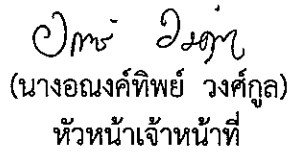 (นางอณงค์ทิพย์ วงศ์กูล)
หัวหน้าเจ้าหน้าที่